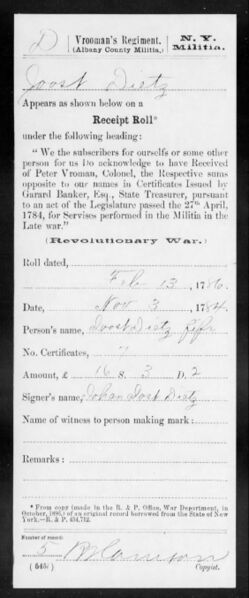 D | Vrooman's Regiment. | N. Y.
(Albany County Militia.) | Militia.
Joost Dietz
Appears as shown below on a
Receipt Roll*
under the following heading:
"We the subscribers for ourselfs or some other
person for us Do acknowledge to have Received
of Peter Vroman, Colonel, the Respective sums
opposite to our names in Certificates Issued by
Garard Banker, Esq., State Treasurer, pursuant
to an act of the Legislature passed the 27th April,
1784, for Servises performed in the Militia in the
Late war."
(Revolutionary War.)
Roll dated,
Feb 13, 1786.
Date, Nov 3, 1784.
Person's name, Joost Dietz
No. Certificates, 7
Amount, £ 16 S. 3 D. 2
Signer's name, Johan Jost Dietz
Name of witness to person making mark:
Remarks:
*From copy (made in the R. & P. Office, War Department, in
October, 1895,) of an original record borrowed from the State of
New York.—R. & P. 434,712.
Number of record:
5
(545) Copyist.